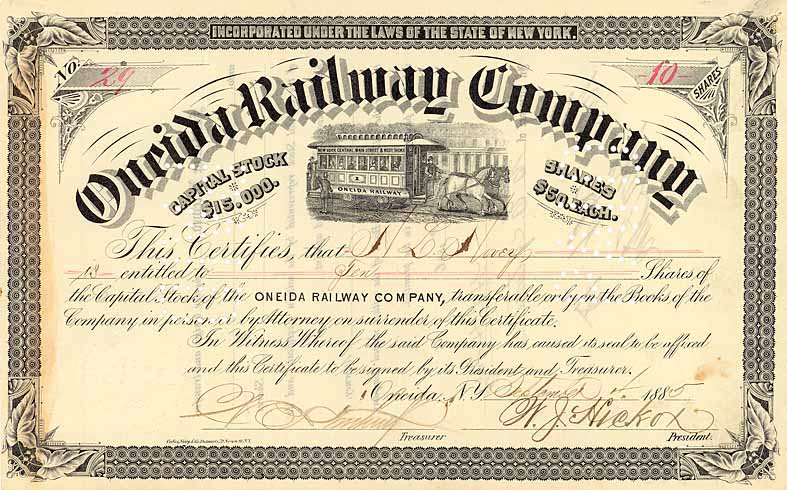 INCORPORATED UNDER THE LAWS OF THE STATE OF NEW YORK.
No. 29
10 SHARES
Oneida Railway Company
CAPITAL STOCK
$15.000.
SHARES
$50. EACH.
NEW YORK CENTRAL, MAIN STREET & WEST SHORE
1
ONEIDA RAILWAY
This Certifies, that
is entitled to Ten Shares of
the Capital Stock of the ONEIDA RAILWAY COMPANY, transferable only on the Books of the
Company in person or by Attorney on surrender of this Certificate.
In Witness Whereof the said Company has caused its seal to be affixed
and this Certificate to be signed by its President and Treasurer.
Oneida, N.Y. 1885
W. J. Hickox
Treasurer
President.